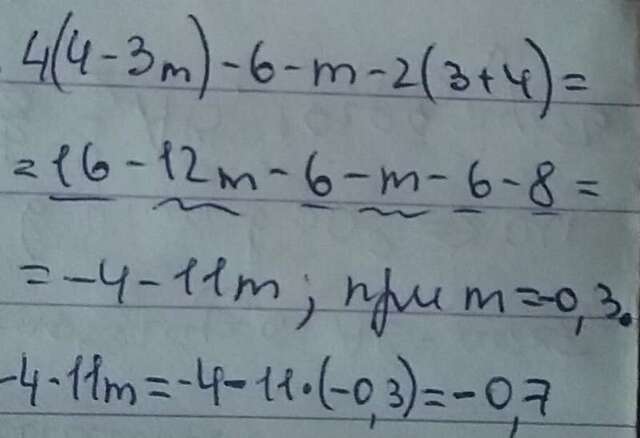 4(4-3m)-6-m-2(3+4)=
=16-12m-6-m-6-8=
=-4-11m; при m=-0,3.
-4-11m=-4-11·(-0,3)=-0,7